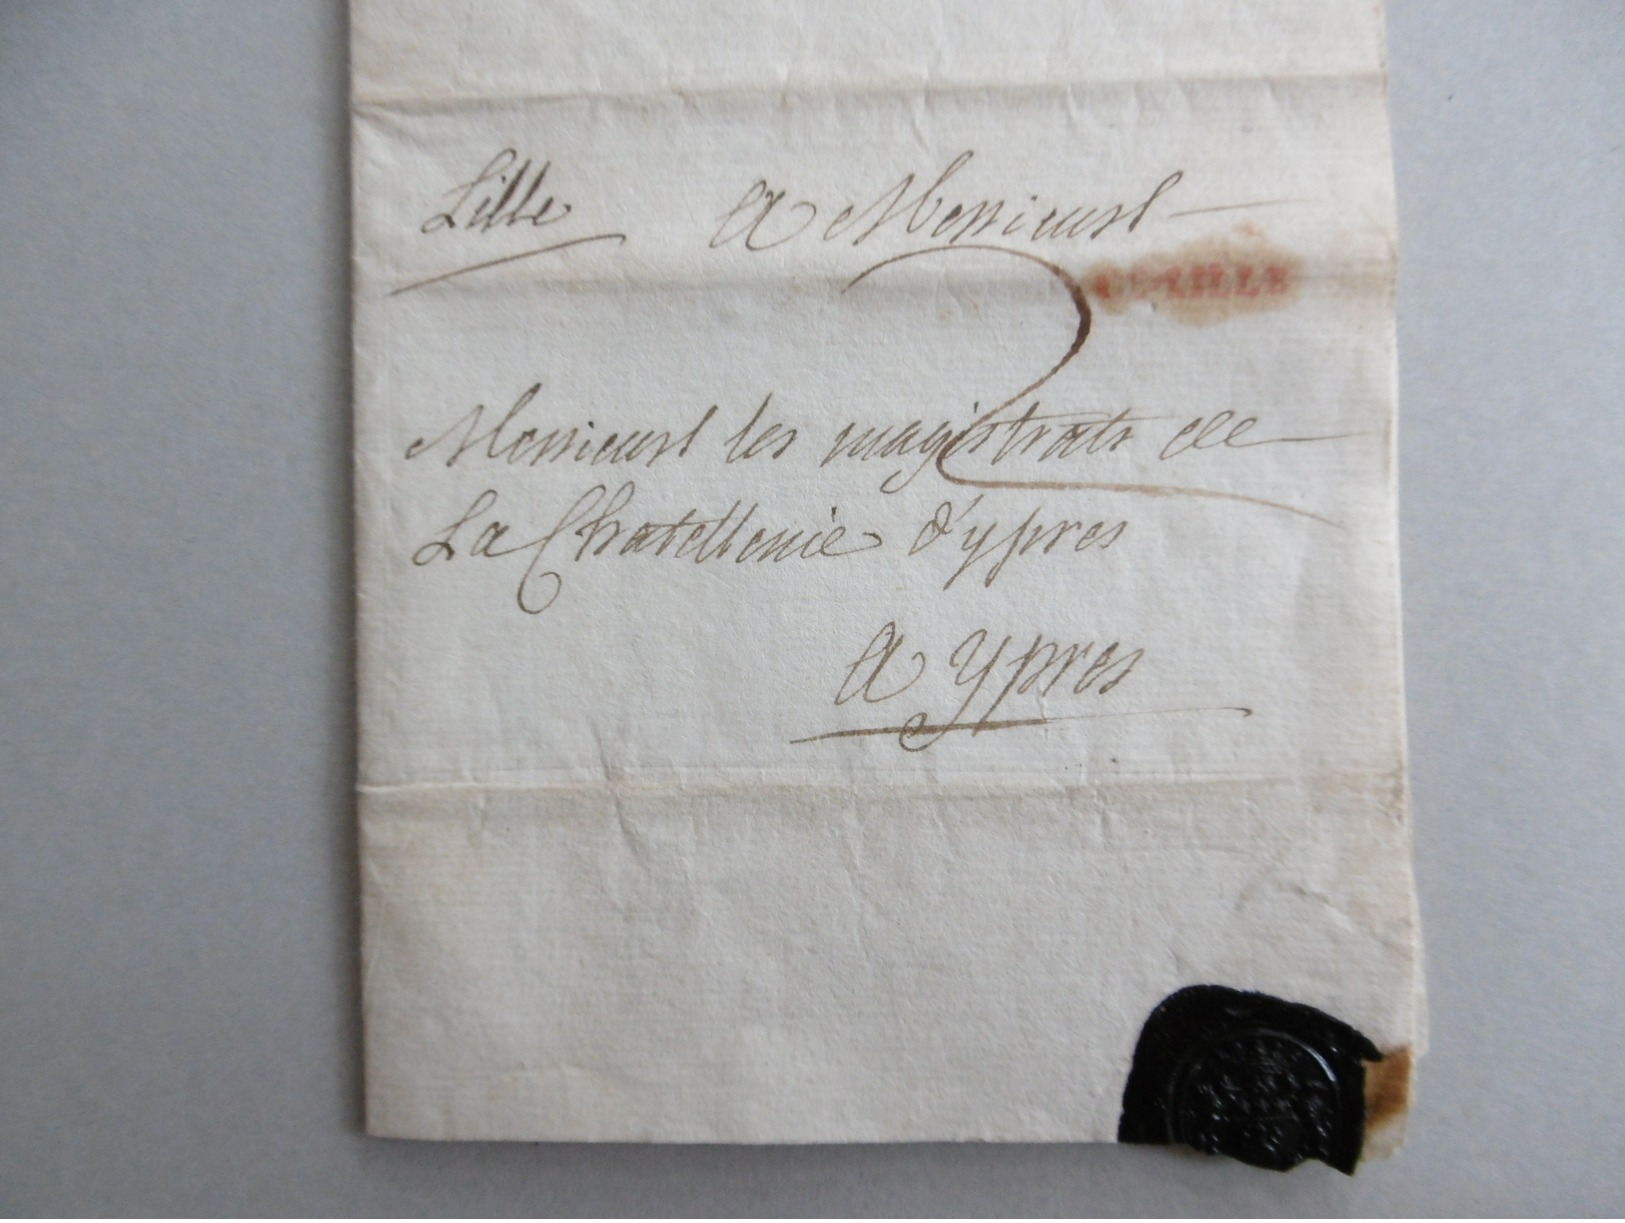 Lille A Messieurs
LILLE
Messieurs les magistrats de
La Chatellenie d'ypres
A ypres